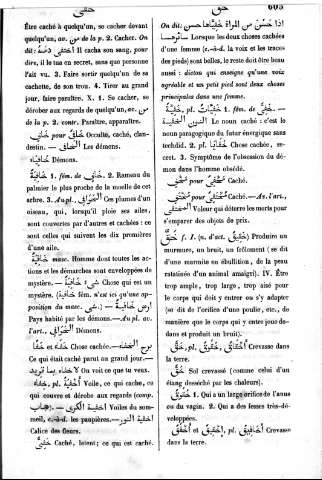 خفى
حق
603
Être caché à quelqu'un, se cacher devant
quelqu'un, av. من de la p. 2. Cacher. On
dit: اختفى دمه Il cacha son sang, pour
dire, il le tua en secret, sans que personne
l'ait vu. 3. Faire sortir quelqu'un de sa
cachette, de son trou. 4. Tirer au grand
jour, faire paraître. X. 1. Se cacher, se
dérober aux regards de quelqu'un, av. من
de la p. 2. contr. Paraître, apparaître.
pour Occulté, caché, clandestin.
— Les Démons.
Démons.
1. fém. de 2. Rameau du
palmier le plus proche de la moelle de cet
arbre. 3. Au pl. الخوافي Ces plumes d'un
oiseau, qui, lorsqu'il ploie ses ailes,
sont couvertes par d'autres et cachées : ce
sont celles qui suivent les dix premières
d'une aile.
masc. Homme dont toutes les actions
et les démarches sont enveloppées de
mystère. — Chose qui est un
mystère. (خافية fém. n'est ici qu'une apposition
du masc. شي). — ارض خافية
Pays habité par les démons. — Au pl. av.
l'art., الخوافي Démons.
خفا et خفاء Chose cachée. — برح الخفاء
Ce qui était caché parut au grand jour. —
On voit ce que tu veux.
خفاء, pl. اخفية Voile, ce qui cache, ce
qui couvre et dérobe aux regards (comp.
حجاب). — اخفية الكرى Voiles du sommeil,
c.-à-d. les paupières. — اخفية النور
Calice des fleurs.
خفي Caché, latent; ce qui est caché.
On dit: اذا حسن من المراة خفياها حسن
سائرها Lorsque les deux choses cachées
d'une femme (c.-à-d. la voix et les traces
des pieds) sont belles, le reste doit être beau
aussi: dicton qui enseigne qu'une voix
agréable et un petit pied sont deux choses
principales dans une femme.
خفية, pl. خفيات 1. fém. de خفي. —
النون الخفية Le noun caché : c'est le
noun paragogique du futur énergique sans
techdid. 2. pl. خفايا Chose cachée, secret.
3. Symptôme de l'obsession du démon
dans l'homme obsédé.
مخفي pour مخفي Caché.
مختفي pour مختفي Caché. — Av. l'art.,
المختفي Voleur qui déterre les morts pour
s'emparer des objets de prix.
خق f. I. (n. d'act. خقيق) Produire un
murmure, un bruit, un frôlement (se dit
d'une marmite en ébullition, de la peau
ratatinée d'un animal amaigri). IV. Être
trop ample, trop large, trop aisé pour
le corps qui doit y entrer ou s'y adapter
(se dit de l'orifice d'une poulie, etc., de
manière que le corps qui y entre joue dedans
et produit un bruit).
خق, pl. اخقاق, خقوق Crevasse dans
la terre.
خق Sol crevassé (comme celui d'un
étang desséché par les chaleurs).
خقوق 1. Qui a un large orifice de l'anus
ou du vagin. 2. Qui a des fesses très-développées.
اخقوق et اخقيق, pl. اخاقيق Crevasse
dans la terre.